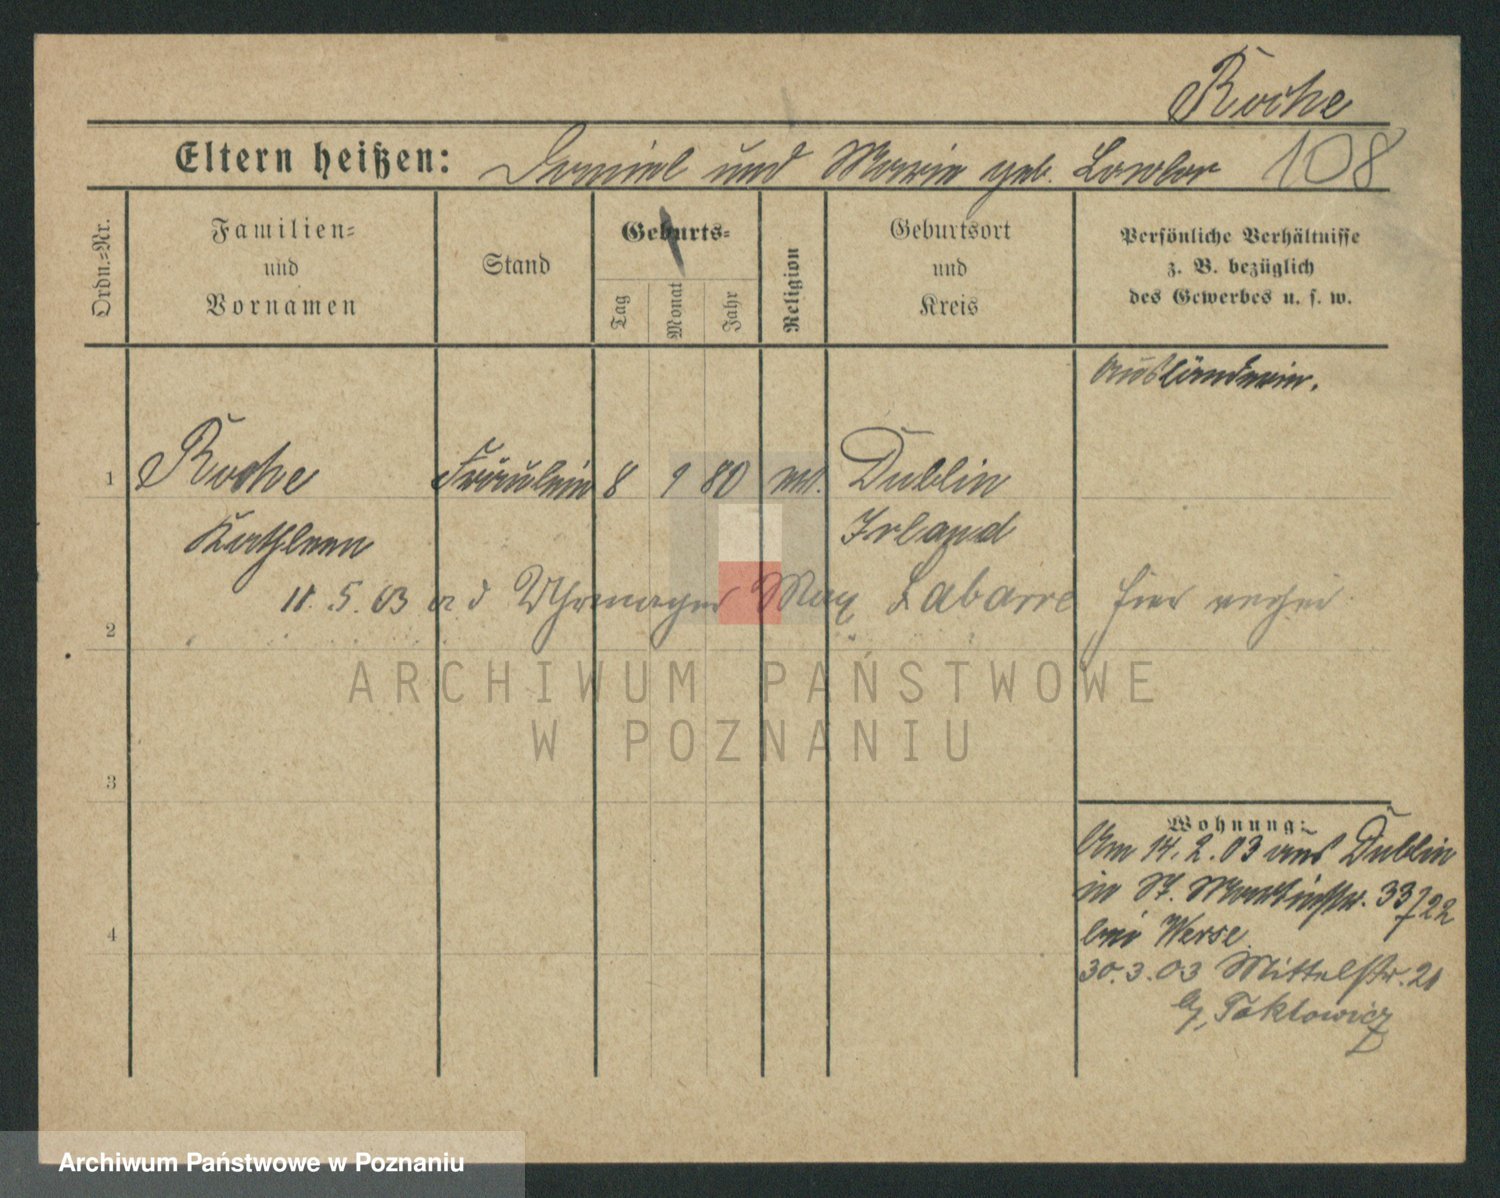 Roche
Eltern heißen: Daniel und Marie geb. Lawlor 108
Ordn.-Nr.
Familien- und Vornamen
Stand
Geburts-
Tag
Monat
Jahr
Religion
Geburtsort und Kreis
Persönliche Verhältnisse z. B. bezüglich des Gewerbes u. s. w.
Ausländerin.
1 Roche Fräulein 8 9 80 Dublin
Kathleen Irland
11. 5. 03 Max Labarre hier
2
3
4
Wohnung:
Am 14. 2. 03 aus Dublin
in St. Martinstr. 33/22
bei Werse
30. 3. 03 Mittelstr. 21
ARCHIWUM PAŃSTWOWE
W POZNANIU
Archiwum Państwowe w Poznaniu